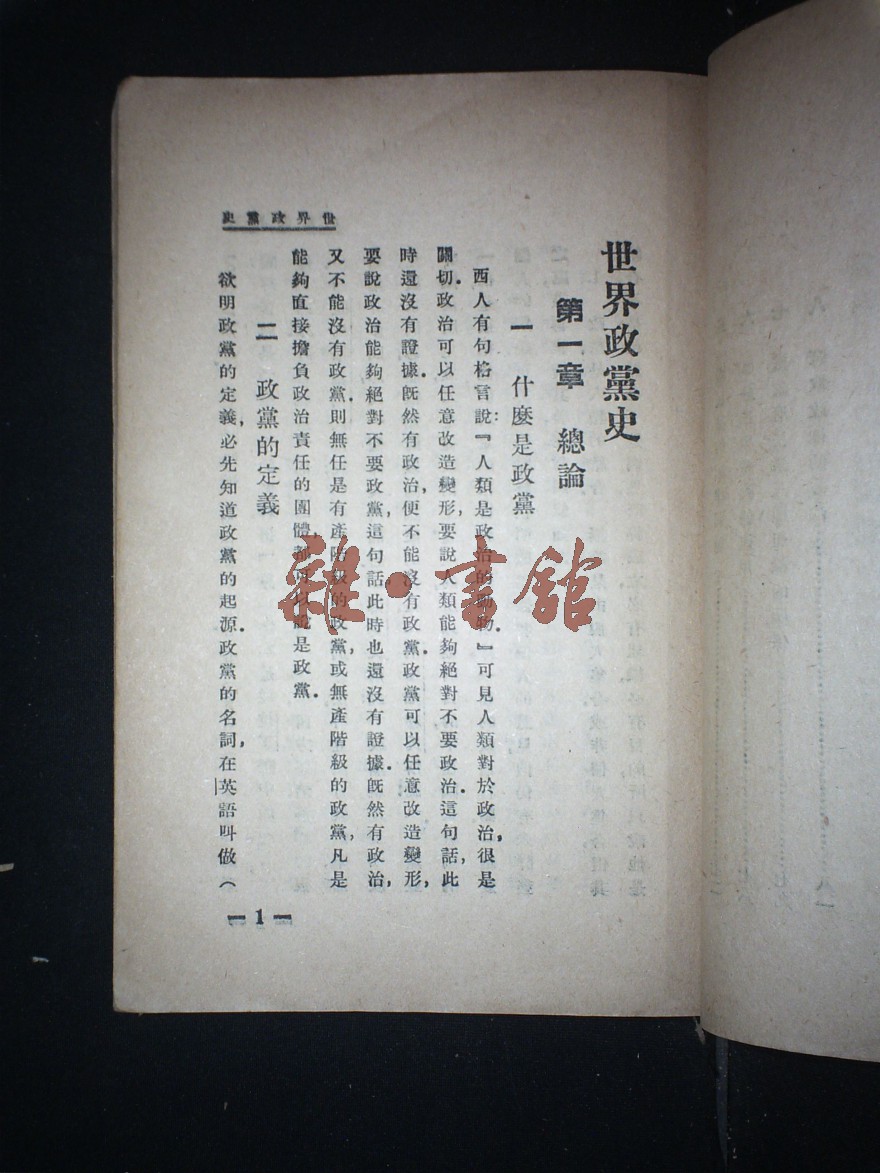 世界政黨史
第一章　總論
一　什麼是政黨
西人有句格言說:『人類是政治的動物』可見人類對於政治,很是
關切.政治可以任意改造變形,要說人類能夠絕對不要政治.這句話,此
時還沒有證據.旣然有政治,便不能沒有政黨.政黨可以任意改造變形,
要說政治能夠絕對不要政黨,這句話此時也還沒有證據.旣然有政治,
又不能沒有政黨.則無任是有產階級的政黨,或無產階級的政黨,凡是
能夠直接擔負政治責任的團體,都可以說是政黨.
二　政黨的定義
欲明政黨的定義,必先知道政黨的起源.政黨的名詞,在英語叫做(
世界政黨史
1
雜·書館